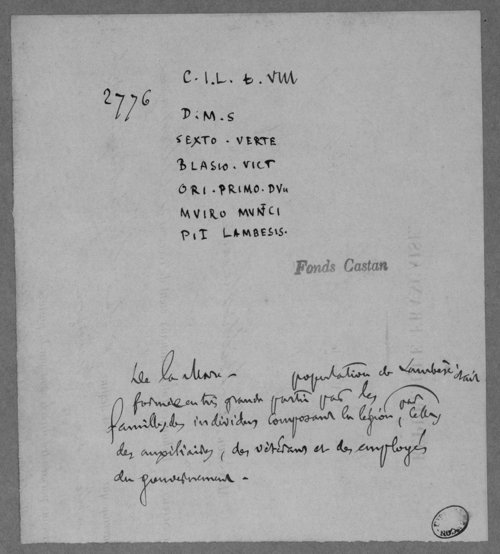 C.I.L. t. VIII
2776
D.M.S
SEXTO. VERTE
BLASIO. VICT
ORI. PRIMO. DVu
MVIRO MVNCI
PII LAMBESIS.
Fonds Castan
De la Mare - population de Lambèse était
formée en très grande partie par les
familles des individus composant la légion, par celles
des auxiliaires, des vétérans et des employés
du gouvernement -